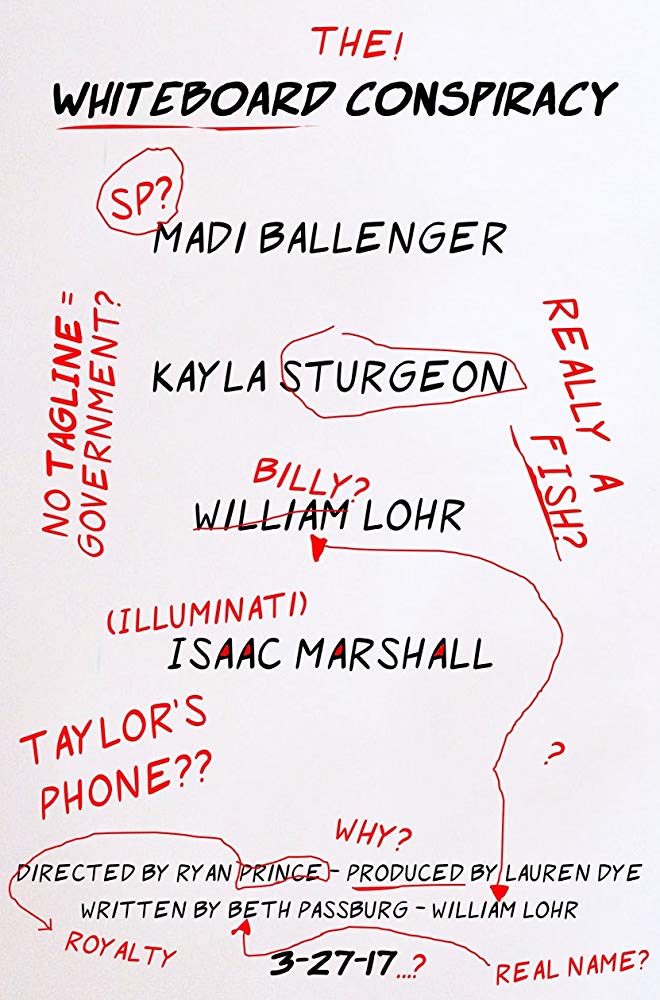 THE!
WHITEBOARD CONSPIRACY
SP?
MADI BALLENGER
NO TAGLINE =
GOVERNMENT?
REALLY A
FISH?
KAYLA STURGEON
BILLY?
WILLIAM LOHR
(ILLUMINATI)
ISAAC MARSHALL
TAYLOR'S
PHONE??
?
WHY?
DIRECTED BY RYAN PRINCE - PRODUCED BY LAUREN DYE
WRITTEN BY BETH PASSBURG - WILLIAM LOHR
ROYALTY
3-27-17...?
REAL NAME?